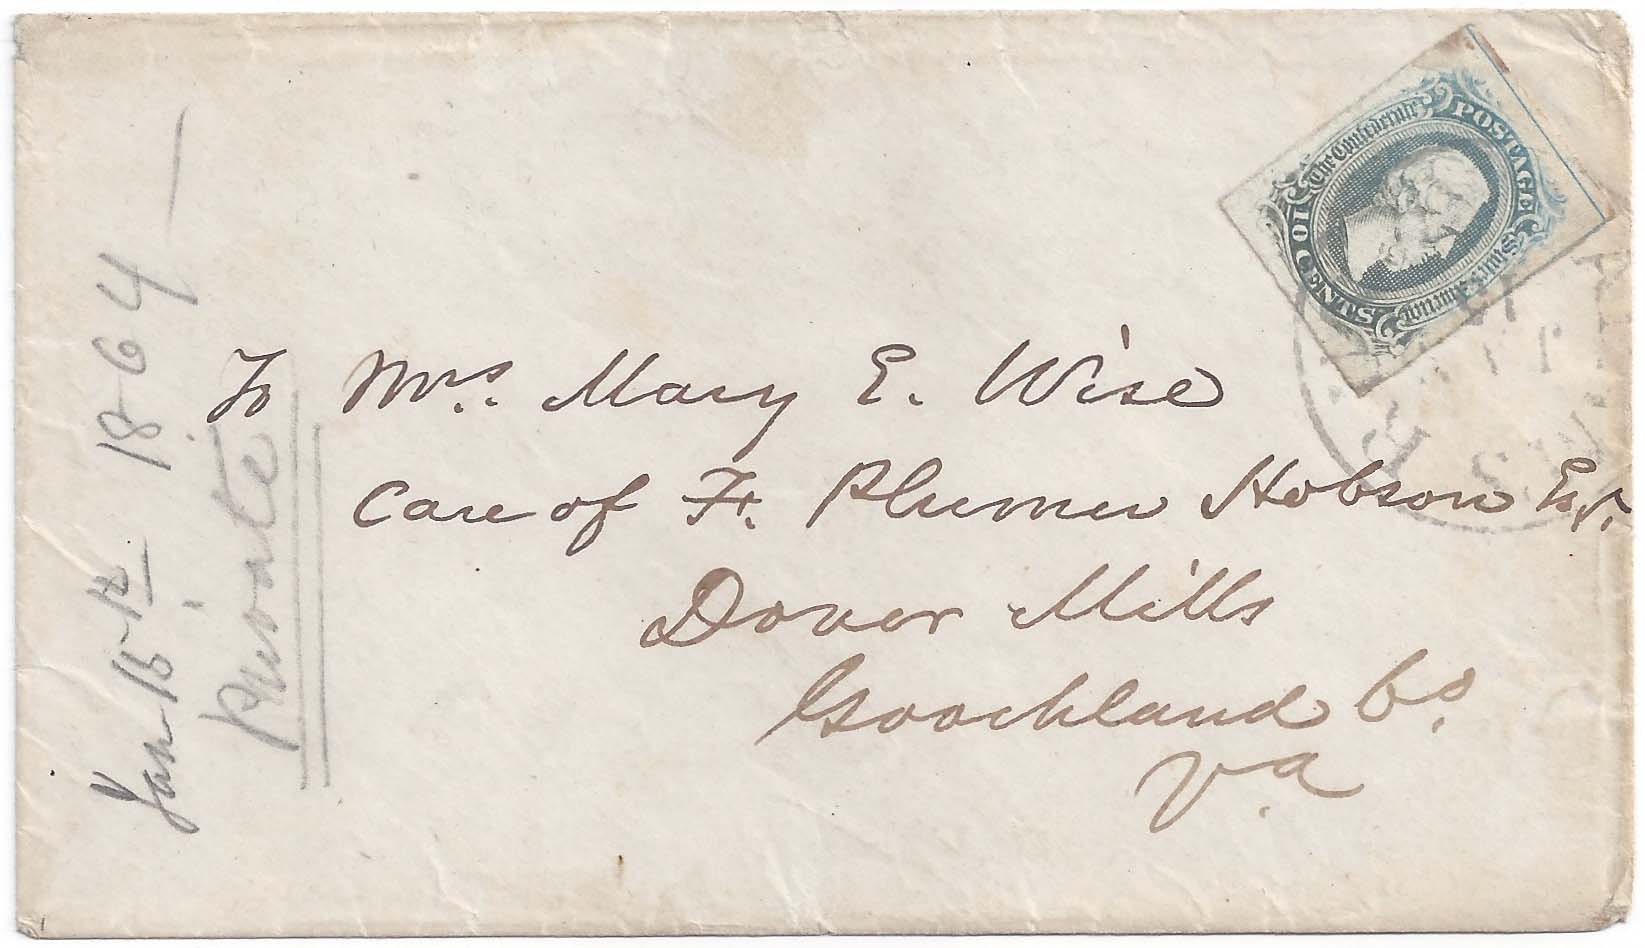 To Mrs. Mary E. Wise
Care of F. Plumer Hobson Esqr.
Dover Mills
Goochland Co.
Va
Jan 15th 1864
Private
The Confederate
States of America
POSTAGE
10 CENTS